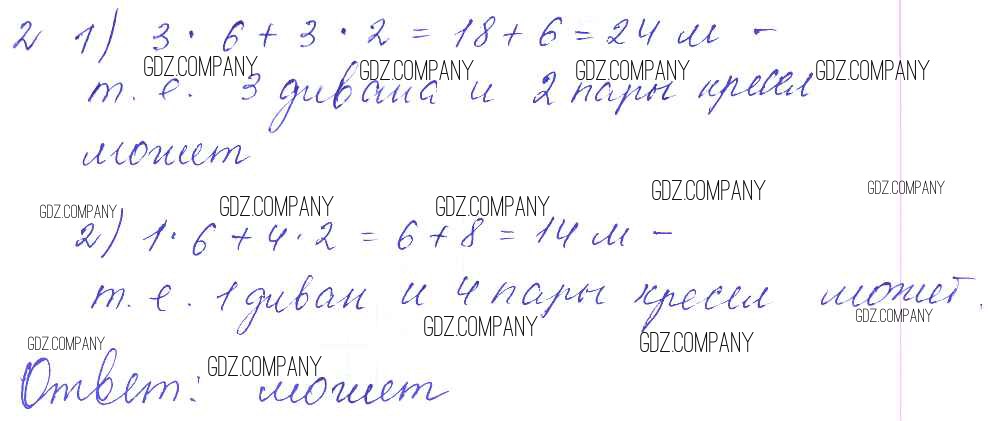 2 1) 3 · 6 + 3 · 2 = 18 + 6 = 24 м -
GDZ.COMPANY GDZ.COMPANY GDZ.COMPANY GDZ.COMPANY
т. е. 3 дивана и 2 пары кресел
может
GDZ.COMPANY GDZ.COMPANY GDZ.COMPANY GDZ.COMPANY GDZ.COMPANY
2) 1 · 6 + 4 · 2 = 6 + 8 = 14 м -
т. е. 1 диван и 4 пары кресел может.
GDZ.COMPANY GDZ.COMPANY GDZ.COMPANY GDZ.COMPANY GDZ.COMPANY
Ответ: может